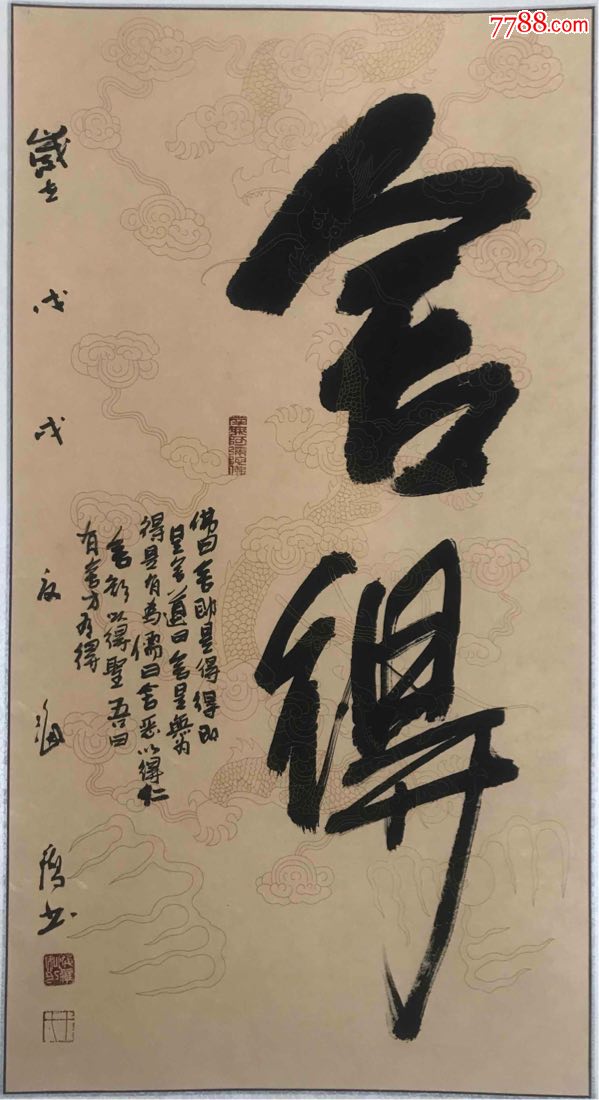 舍得
佛曰舍即是得得即
是舍道曰舍是無为
得是有為儒曰舍恶以得仁
舍欲以得聖吾曰
有舍方有得
歲在戊戌
书
7788.com